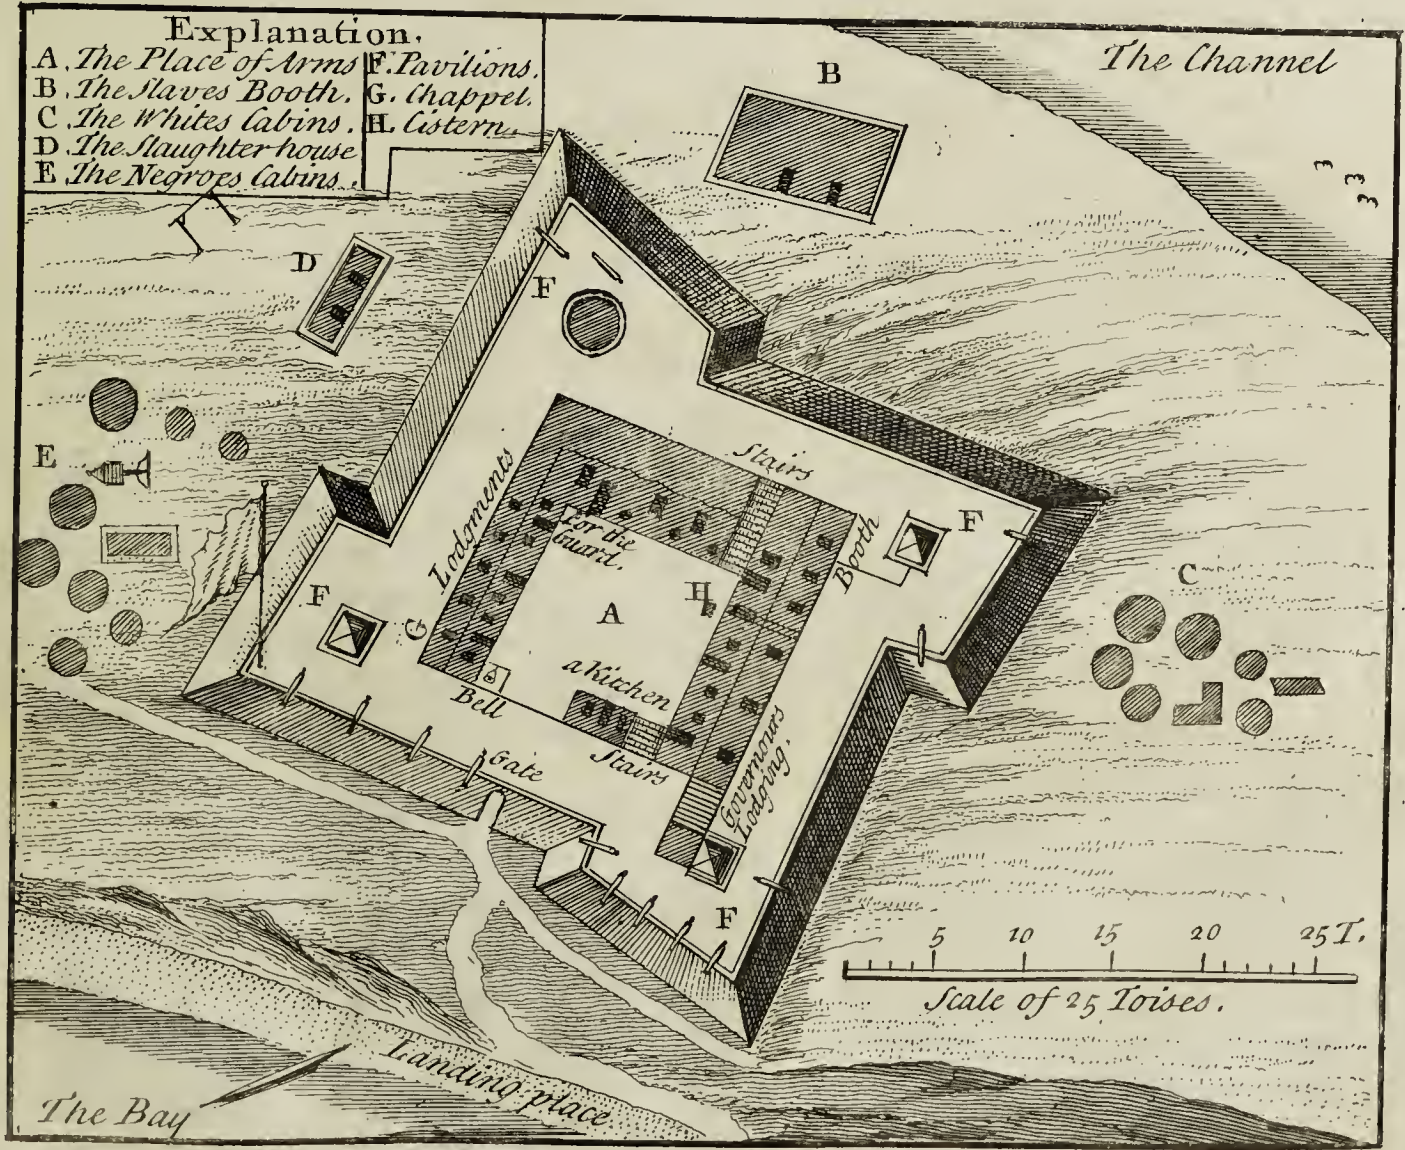 Explanation.
A. The Place of Arms
B. The Slaves Booth.
C. The Whites Cabins.
D. The Slaughter house
E. The Negroes Cabins.
F. Pavilions.
G. Chappel.
H. Cistern.
The Channel
B
D
F
E
Stairs
Lodgments
For the
Guard.
Booth
F
H
A
C
F
G
a Kitchen
Bell
Stairs
Gate
Governours
Lodging.
F
5 10 15 20 25 T.
Scale of 25 Toises.
Landing place
The Bay